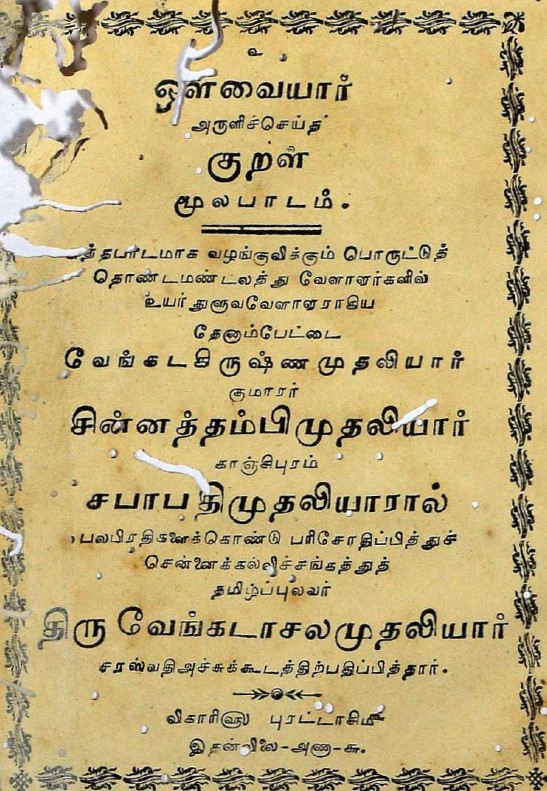 உ
ஔவையார்
அருளிச்செய்த
குறள்
மூலபாடம்.
வழங்குவிக்கும் பொருட்டுத்
தொண்டமண்டலத்து வேளாளர்களில்
உயர்துளுவவேளாளராகிய
தேனாம்பேட்டை
வேங்கடகிருஷ்ணமுதலியார்
குமாரர்
சின்னத்தம்பிமுதலியார்
காஞ்சிபுரம்
சபாபதிமுதலியாரால்
பலபிரதிகளைக்கொண்டு பரிசோதிப்பித்துச்
சென்னைக்கல்விச்சங்கத்துத்
தமிழ்ப்புலவர்
திருவேங்கடாசலமுதலியார்
சரஸ்வதிஅச்சுக்கூடத்திற்பதிப்பித்தார்.
விகாரி௵ புரட்டாசி௴
இதன்விலை-அணா-௬.